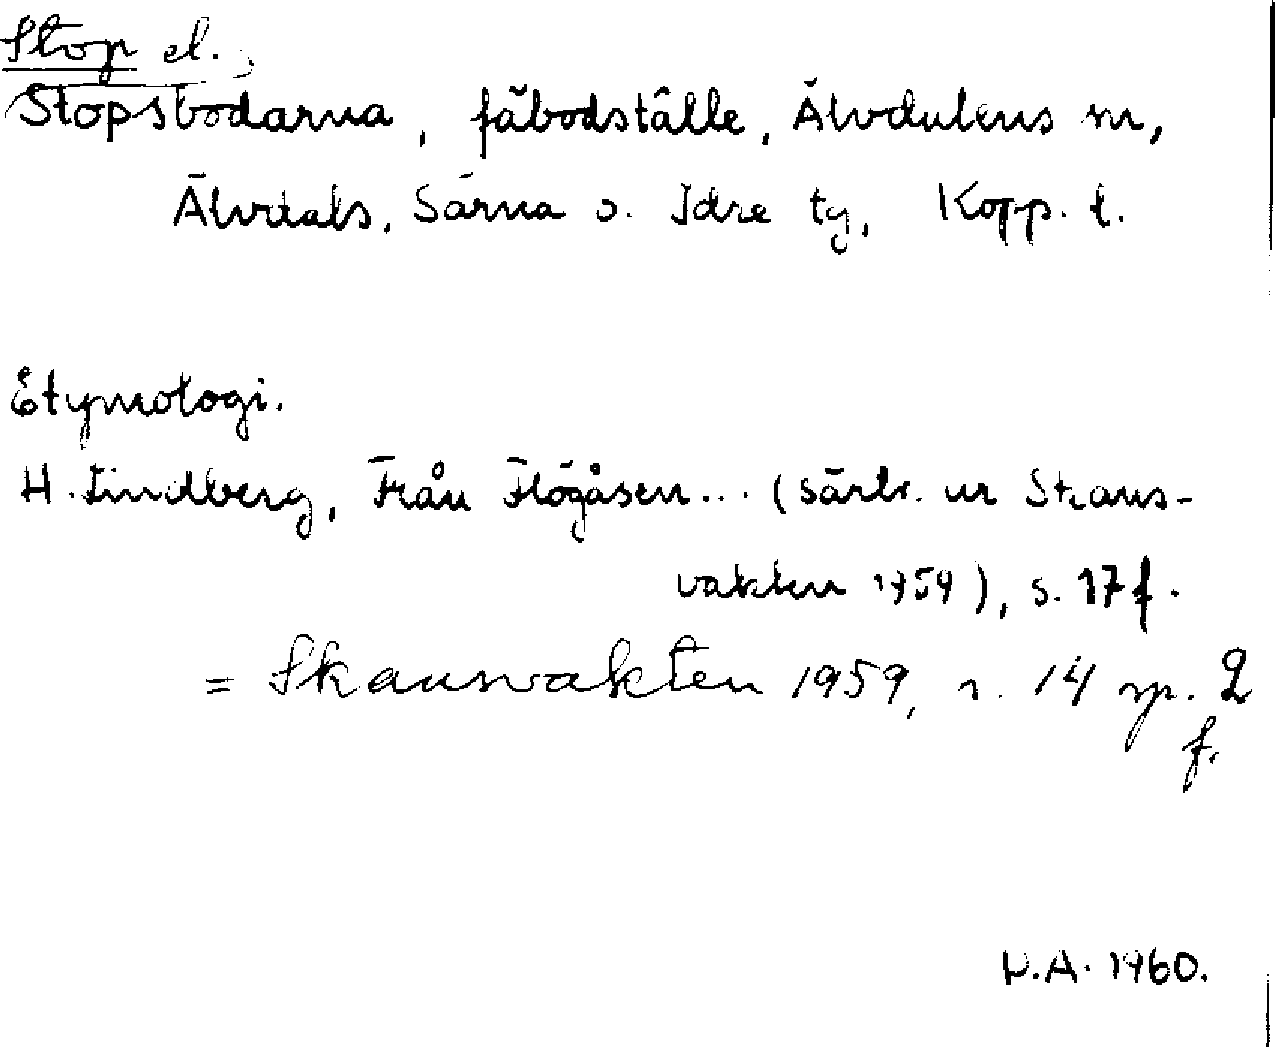 Stop el.
Stopsbodarna, fäbodställe, Älvdalens sn,
Älvdals, Särna o. Idre tg, Kopp. l.
Etymologi.
H. Lindberg, Från Flögåsen... (särtr. ur Skans-
vakten 1959), s. 17 f.
= Skansvakten 1959, s. 14 sp. 2
f.
D.A. 1960.